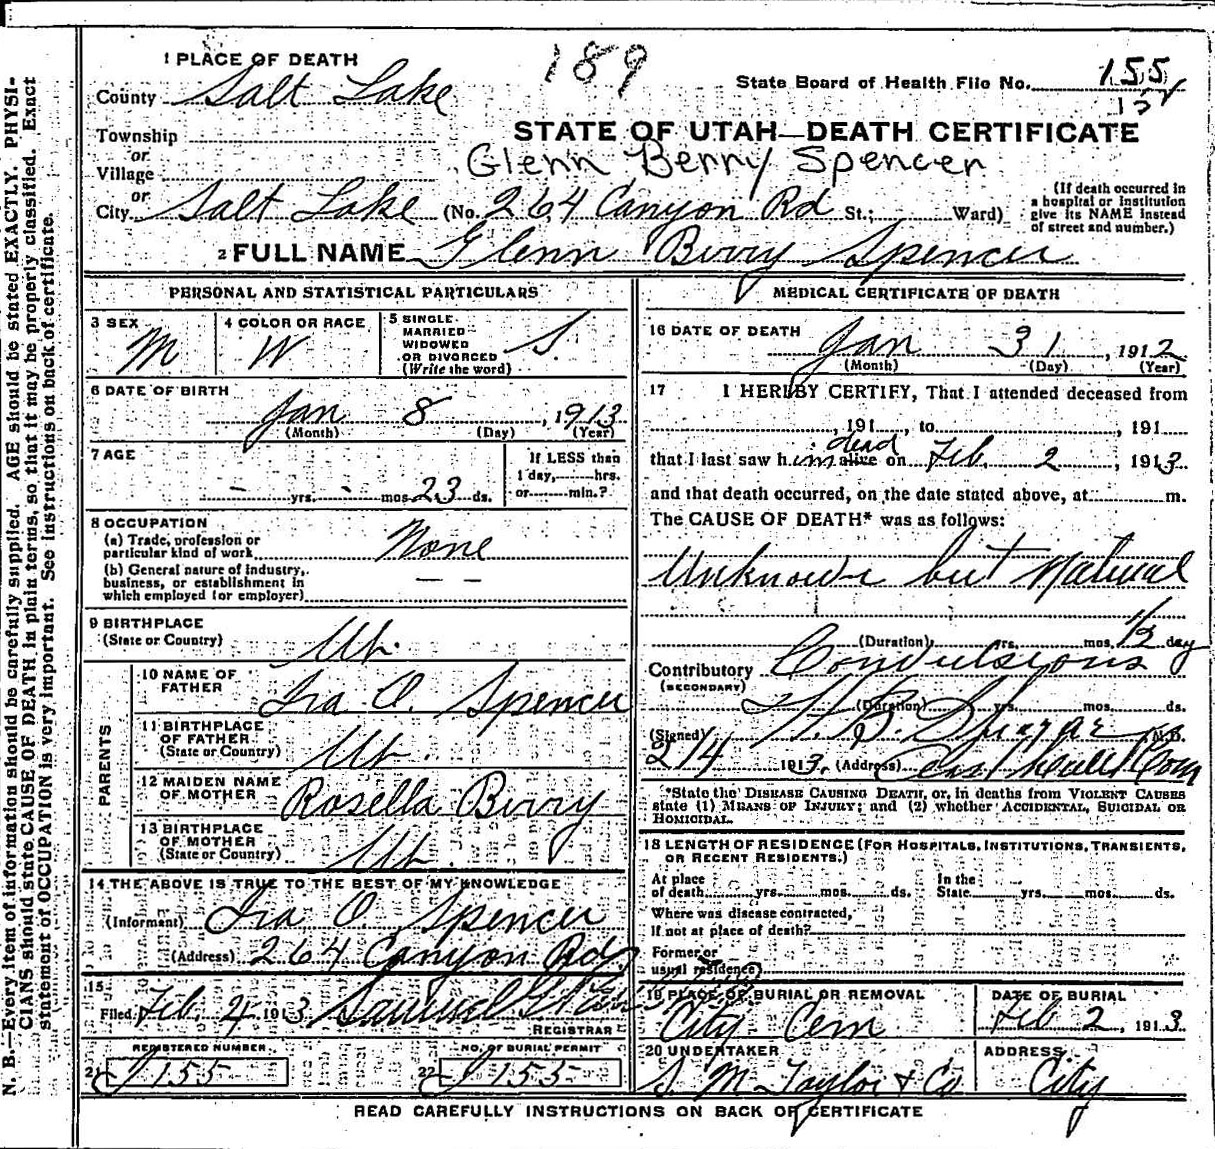 N. B.—Every item of information should be carefully supplied. AGE should be stated EXACTLY. PHYSI-
CIANS should state CAUSE OF DEATH in plain terms, so that it may be properly classified. Exact
statement of OCCUPATION is very important. See instructions on back of certificate.
189
1 PLACE OF DEATH
State Board of Health File No. 155
County Salt Lake
STATE OF UTAH—DEATH CERTIFICATE
Township
or
Glenn Berry Spencer
Village
or
City Salt Lake (No. 264 Canyon Rd St.; Ward)
(If death occurred in
a hospital or institution
give its NAME instead
of street and number.)
2 FULL NAME Glenn Berry Spencer
PERSONAL AND STATISTICAL PARTICULARS
3 SEX
M
4 COLOR OR RACE
W
5 SINGLE
MARRIED
WIDOWED
OR DIVORCED
(Write the word)
S.
6 DATE OF BIRTH
Jan 8, 1913
(Month) (Day) (Year)
7 AGE
- yrs. - mos. 23 ds.
If LESS than
1 day, hrs.
or min.?
8 OCCUPATION
(a) Trade, profession or
particular kind of work None
(b) General nature of industry,
business, or establishment in
which employed (or employer) — —
9 BIRTHPLACE
(State or Country) Ut.
PARENTS
10 NAME OF
FATHER Ira O. Spencer
11 BIRTHPLACE
OF FATHER
(State or Country) Ut.
12 MAIDEN NAME
OF MOTHER Rosella Berry
13 BIRTHPLACE
OF MOTHER
(State or Country) Ut.
14 THE ABOVE IS TRUE TO THE BEST OF MY KNOWLEDGE
(Informant) Ira O. Spencer
(Address) 264 Canyon Rd
15
Filed Feb. 4, 1913 Samuel G.
REGISTRAR
REGISTERED NUMBER
21 155
NO. OF BURIAL PERMIT
22 155
MEDICAL CERTIFICATE OF DEATH
16 DATE OF DEATH
Jan 31, 1912
(Month) (Day) (Year)
17 I HEREBY CERTIFY, That I attended deceased from
, 191 , to , 191
dead
that I last saw him alive on Feb. 2, 1913
and that death occurred, on the date stated above, at m.
The CAUSE OF DEATH* was as follows:
Unknown but Natural
(Duration) yrs. mos. 1/2 day
Contributory Convulsions
(SECONDARY)
(Duration) yrs. mos. ds.
(Signed) M.D.
2/4 1913. (Address)
*State the DISEASE CAUSING DEATH, or, in deaths from VIOLENT CAUSES
state (1) MEANS OF INJURY; and (2) whether ACCIDENTAL, SUICIDAL OR
HOMICIDAL.
18 LENGTH OF RESIDENCE (FOR HOSPITALS, INSTITUTIONS, TRANSIENTS,
OR RECENT RESIDENTS.)
At place
of death yrs. mos. ds.
In the
State yrs. mos. ds.
Where was disease contracted,
If not at place of death?
Former or
usual residence
19 PLACE OF BURIAL OR REMOVAL
City Cem
DATE OF BURIAL
Feb 2, 1913
20 UNDERTAKER
S. M. Taylor & Co
ADDRESS
City
READ CAREFULLY INSTRUCTIONS ON BACK OF CERTIFICATE